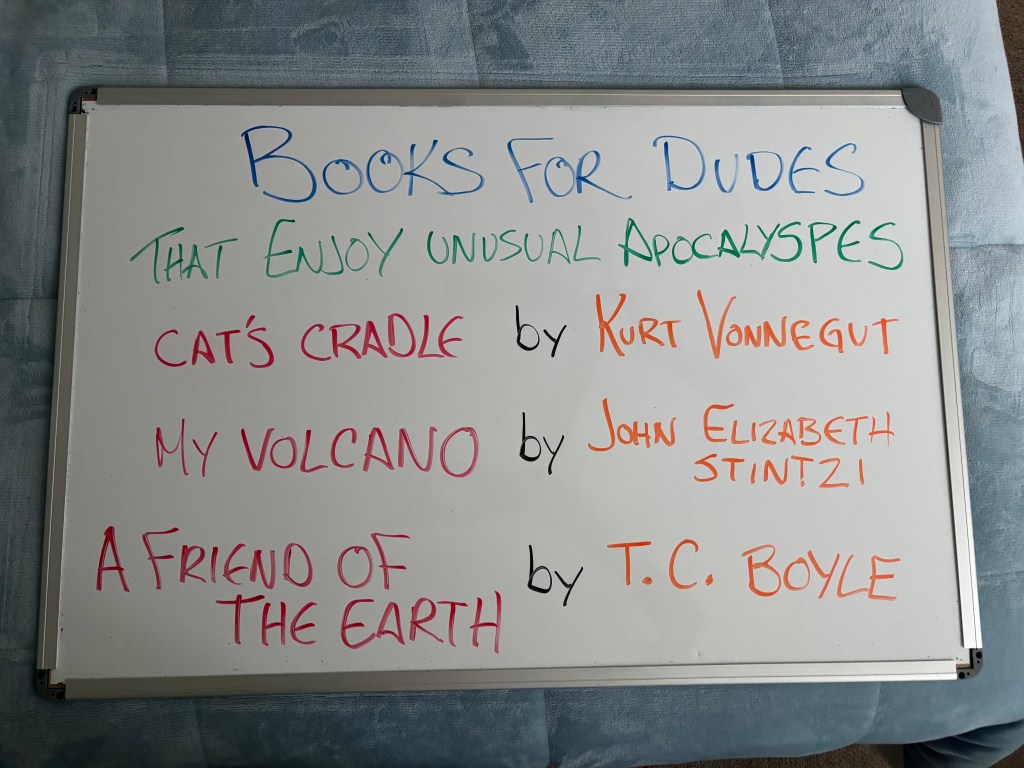 BOOKS FOR DUDES
THAT ENJOY UNUSUAL APOCALYSPES
CAT'S CRADLE by KURT VONNEGUT
MY VOLCANO by JOHN ELIZABETH
STINTZI
A FRIEND OF by T.C. BOYLE
THE EARTH